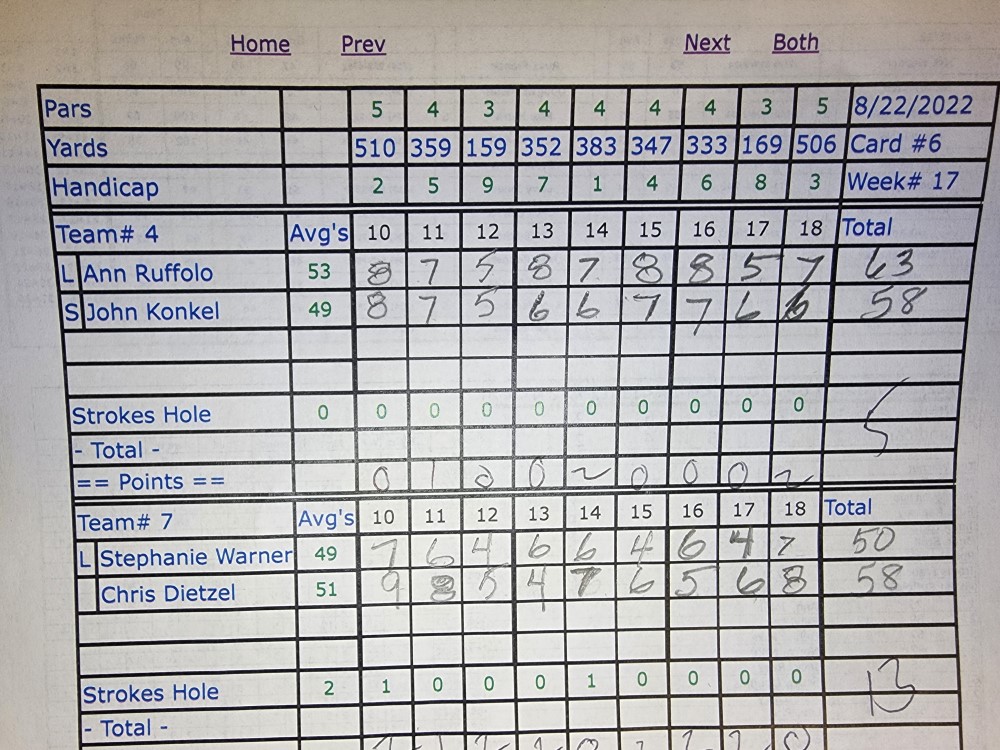 Home Prev Next Both
Pars 5 4 3 4 4 4 4 3 5 8/22/2022
Yards 510 359 159 352 383 347 333 169 506 Card #6
Handicap 2 5 9 7 1 4 6 8 3 Week# 17
Team# 4 Avg's 10 11 12 13 14 15 16 17 18 Total
L Ann Ruffolo 53 8 7 5 8 7 8 8 5 7 63
S John Konkel 49 8 7 5 6 6 7 7 6 6 58
Strokes Hole 0 0 0 0 0 0 0 0 0 0
5
- Total -
== Points == 0 1 0 0 2 0 0 0 2
Team# 7 Avg's 10 11 12 13 14 15 16 17 18 Total
L Stephanie Warner 49 7 6 4 6 6 4 6 4 7 50
Chris Dietzel 51 9 8 5 4 7 6 5 6 8 58
Strokes Hole 2 1 0 0 0 1 0 0 0 0 13
- Total -